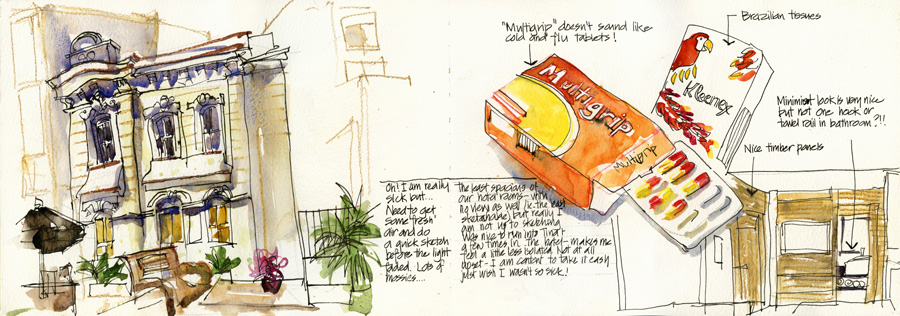 "Multigrip" doesn't sound like
cold and flu tablets!
Brazilian tissues
Multigrip
Kleenex
Multigrip
Minimist look is very nice
but not one hook or
towel rail in bathroom?!!
Nice timber panels
Oh! I am really
sick but...
Need to get
some "fresh"
air and do
a quick sketch
before the light
faded. Lots of
mossies....
The least spacious of
our hotel rooms - with
no view as well (ie. the least
sketchable) but really I
am not up to sketching
Was nice to run into Tina
a few times in the hotel - makes me
feel a little less isolated. Not at all
upset - I am content to take it easy
just wish I wasn't so sick!